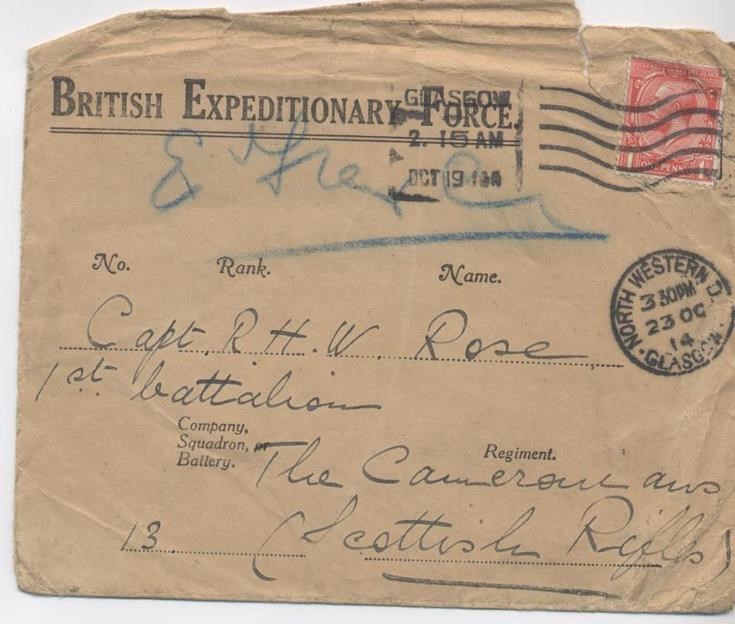 BRITISH EXPEDITIONARY FORCE.
GLASGOW
2. 15 AM
OCT 19 14
POSTAGE REVENUE
1 ONE PENNY 1
No. Rank. Name.
NORTH WESTERN D.
3 30PM
23 OC
14
GLASGOW
Capt. R. H. W. Rose
1st. battalion
Company,
Squadron, or
Battery.
Regiment.
The Cameronians
13
(Scottish Rifles)